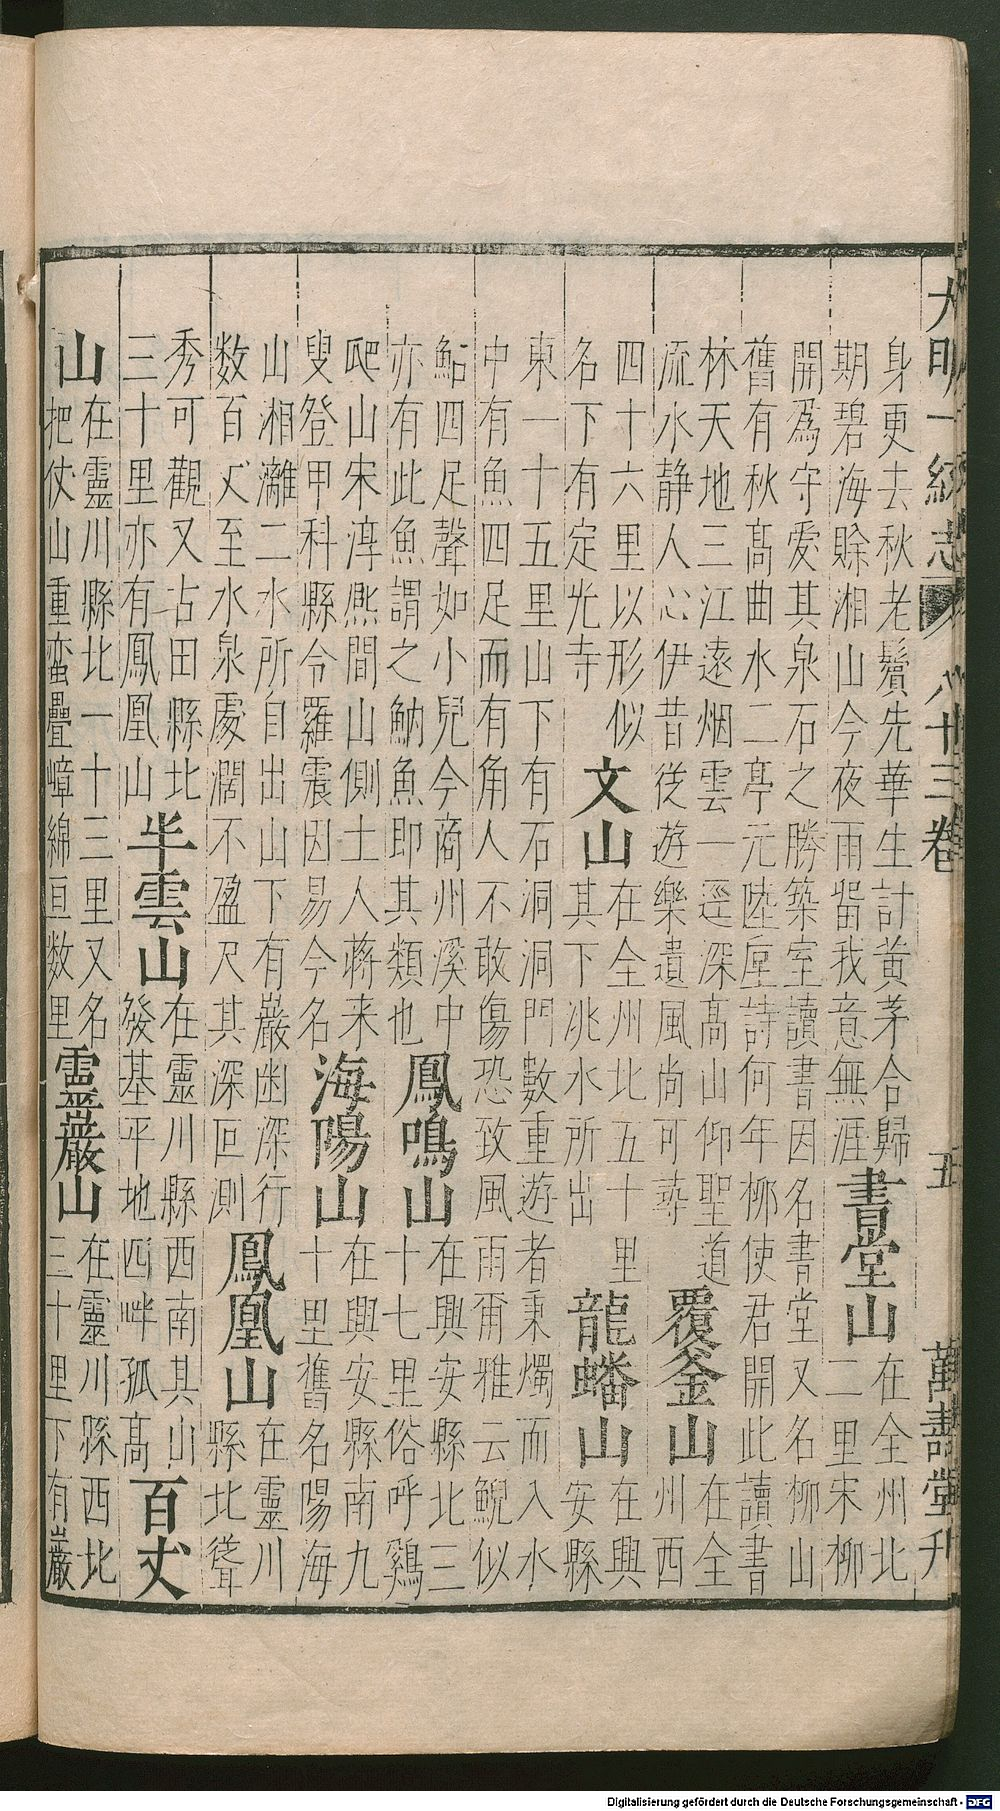 大明一統志 八十三卷 五 萬壽堂刊
身更去秋老鬢先華生計黄茅合歸
期碧海賒湘山今夜雨留我意無涯
書堂山
在全州北
二里宋柳
開爲守愛其泉石之勝築室讀書因名書堂又名柳山
舊有秋髙曲水二亭元陸垕詩何年柳使君開此讀書
林天地三江遠烟雲一逕深髙山仰聖道
流水靜人心伊昔從遊樂遺風尚可尋
覆釜山
在全
州西
四十六里以形似
名下有定光寺
文山
在全州北五十里
其下洮水所出
龍蟠山
在興
安縣
東一十五里山下有石洞洞門數重遊者秉燭而入水
中有魚四足而有角人不敢傷恐致風雨爾雅云鯢似
鮎四足聲如小兒今商州溪中
亦有此魚謂之魶魚即其類也
鳳鳴山
在興安縣北三
十七里俗呼鷄
爬山宋淳熈間山側土人蔣来
叟登甲科縣令羅震因易今名
海陽山
在興安縣南九
十里舊名陽海
山湘灕二水所自出山下有巖幽深行
数百丈至水泉處濶不盈尺其深叵測
鳳凰山
在靈川
縣北聳
秀可觀又古田縣北
三十里亦有鳳凰山
半雲山
在靈川縣西南其山
發基平地四畔孤髙
百丈
山
在靈川縣北一十三里又名
把仗山重巒疊嶂綿亘数里
靈巖山
在靈川縣西北
三十里下有巖
Digitalisierung gefördert durch die Deutsche Forschungsgemeinschaft - DFG